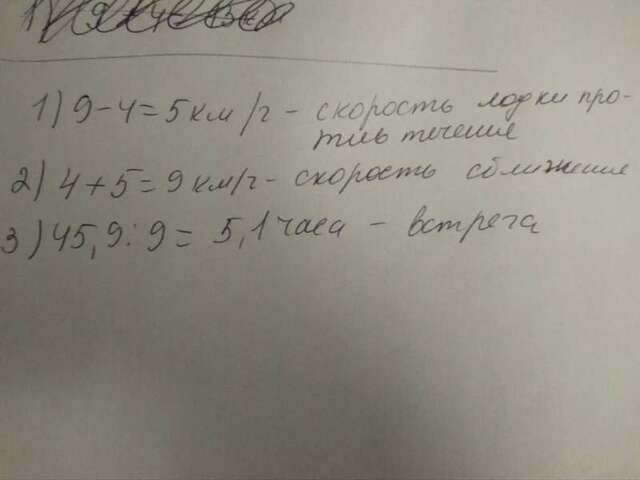 1) 9-4=5км/ч - скорость лодки про-
тив течения
2) 4+5=9км/ч- скорость сближения
3) 45,9:9= 5,1 часа - встреча